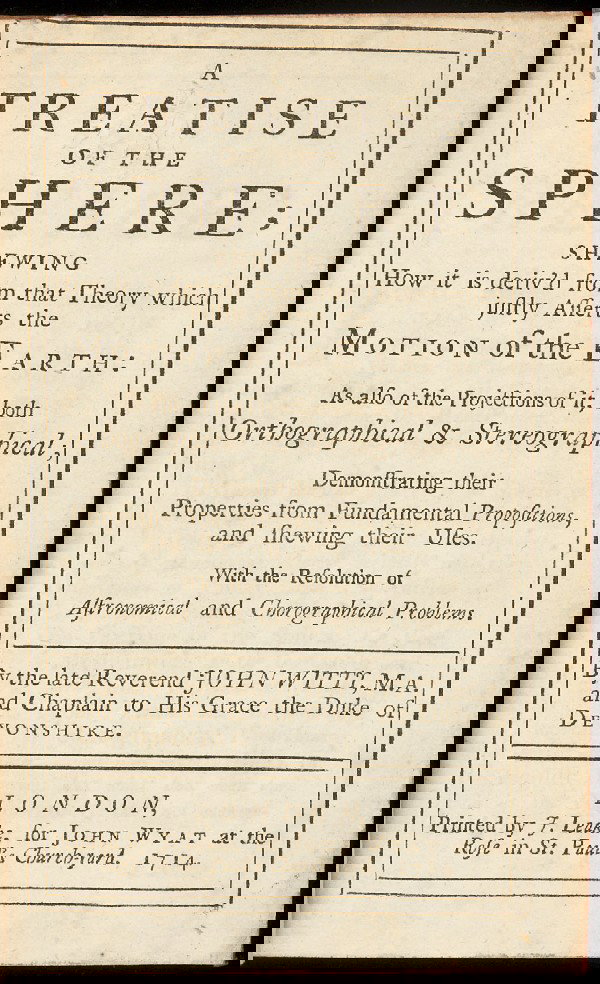 A
TREATISE
OF THE
SPHERE;
SHEWING
How it is deriv'd from that Theory which
juſtly Aſſerts the
MOTION of the EARTH:
As alſo of the Projections of it, both
Orthographical & Stereographical,
Demonſtrating their
Properties from Fundamental Propoſitions,
and ſhewing their Uſes.
With the Reſolution of
Aſtronomical and Chorographical Problems.
By the late Reverend JOHN WITTY, M.A.
and Chaplain to His Grace the Duke of
DEVONSHIRE.
LONDON,
Printed by J. Leake, for JOHN WYAT at the
Roſe in St. Paul's Church-yard. 1714.